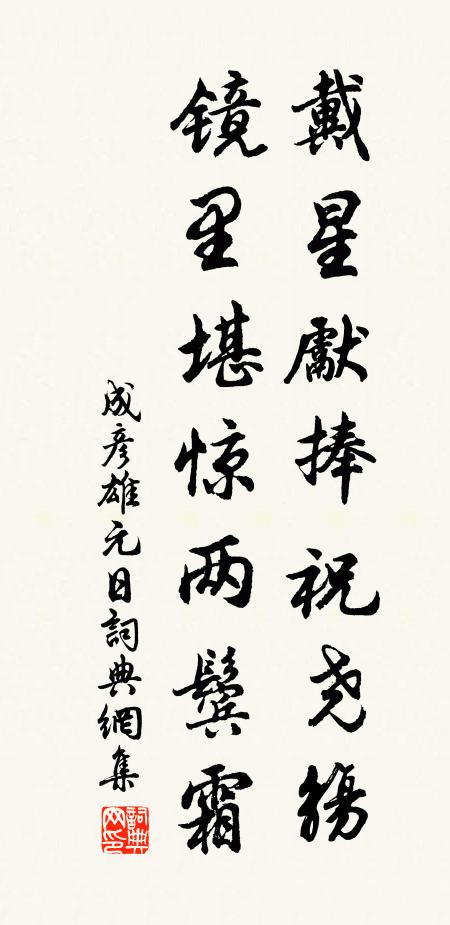 戴星獻捧祝尧觴
镜里堪惊两鬓霜
成彦雄元日詞典網集
詞典网印